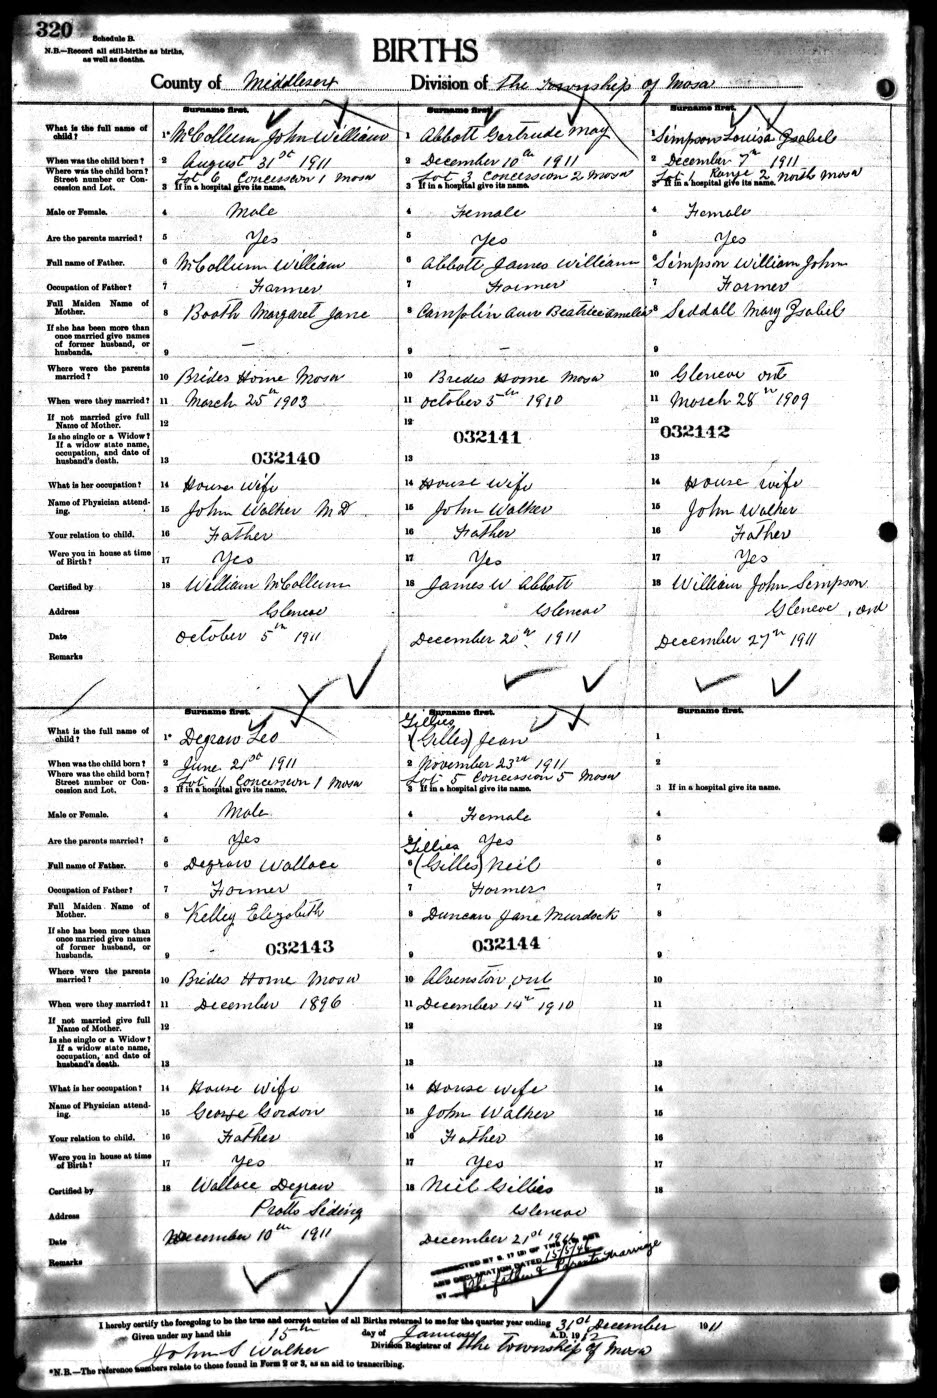 320
Schedule B.
N.B.—Record all still-births as births,
as well as deaths.
BIRTHS
County of Middlesex Division of the Township of Mosa
Surname first. Surname first. Surname first.
What is the full name of child? 1* McCollum John William 1 Abbott Gertrude May 1 Simpson Louisa Isabel
When was the child born? 2 August 31st 1911 2 December 10th 1911 2 December 7th 1911
Where was the child born? Street number or Concession and Lot. Lot 6 Concession 1 Mosa Lot 3 Concession 2 Mosa Lot 1 Range 2 North Mosa
3 If in a hospital give its name. 3 If in a hospital give its name. 3 If in a hospital give its name.
Male or Female. 4 Male 4 Female 4 Female
Are the parents married? 5 Yes 5 Yes 5 Yes
Full name of Father. 6 McCollum William 6 Abbott James William 6 Simpson William John
Occupation of Father? 7 Farmer 7 Farmer 7 Farmer
Full Maiden Name of Mother. 8 Booth Margaret Jane 8 Camplin Ann Beatrice Amelia 8 Seddall Mary Isabel
If she has been more than once married give names of former husband, or husbands. 9 — 9 — 9
Where were the parents married? 10 Brides Home Mosa 10 Brides Home Mosa 10 Glencoe Ont
When were they married? 11 March 25th 1903 11 October 5th 1910 11 March 28th 1909
If not married give full Name of Mother. 12 12 12
032140 032141 032142
Is she single or a Widow? If a widow state name, occupation, and date of husband's death. 13 13 13
What is her occupation? 14 House Wife 14 House Wife 14 House wife
Name of Physician attending. 15 John Walker M D 15 John Walker 15 John Walker
Your relation to child. 16 Father 16 Father 16 Father
Were you in house at time of Birth? 17 Yes 17 Yes 17 Yes
Certified by 18 William McCollum 18 James W Abbott 18 William John Simpson
Address Glencoe Glencoe Glencoe, Ont
Date October 5th 1911 December 20th 1911 December 27th 1911
Remarks
Surname first. Surname first. Surname first.
Gillies
What is the full name of child? 1* Degraw Leo 1 (Gilles) Jean 1
When was the child born? 2 June 21st 1911 2 November 23rd 1911 2
Where was the child born? Street number or Concession and Lot. Lot 11 Concession 1 Mosa Lot 5 Concession 5 Mosa
3 If in a hospital give its name. 3 If in a hospital give its name. 3 If in a hospital give its name.
Male or Female. 4 Male 4 Female 4
Are the parents married? 5 Yes 5 Yes 5
Gillies
Full name of Father. 6 Degraw Wallace 6 (Gilles) Neil 6
Occupation of Father? 7 Farmer 7 Farmer 7
Full Maiden Name of Mother. 8 Kelley Elizabeth 8 Duncan Jane Murdock 8
If she has been more than once married give names of former husband, or husbands. 9 032143 9 032144 9
Where were the parents married? 10 Brides Home Mosa 10 Alvinston Ont 10
When were they married? 11 December 1896 11 December 14th 1910 11
If not married give full Name of Mother. 12 12 12
Is she single or a Widow? If a widow state name, occupation, and date of husband's death. 13 13 13
What is her occupation? 14 House Wife 14 House Wife 14
Name of Physician attending. 15 George Gordon 15 John Walker 15
Your relation to child. 16 Father 16 Father 16
Were you in house at time of Birth? 17 Yes 17 Yes 17
Certified by 18 Wallace Degraw 18 Neil Gillies 18
Address Pratts Siding Glencoe
Date December 10th 1911 December 21st
Remarks CORRECTED BY S. 17 OF THE ACT
AND DECLARATION DATED 15/5/46
BY the father & Parents Marriage
I hereby certify the foregoing to be the true and correct entries of all Births returned to me for the quarter year ending 31st December 1911
Given under my hand this 15th day of January A.D. 1912
John S Walker Division Registrar of the Township of Mosa
*N.B.—The reference numbers relate to those found in Form 2 or 3, as an aid to transcribing.